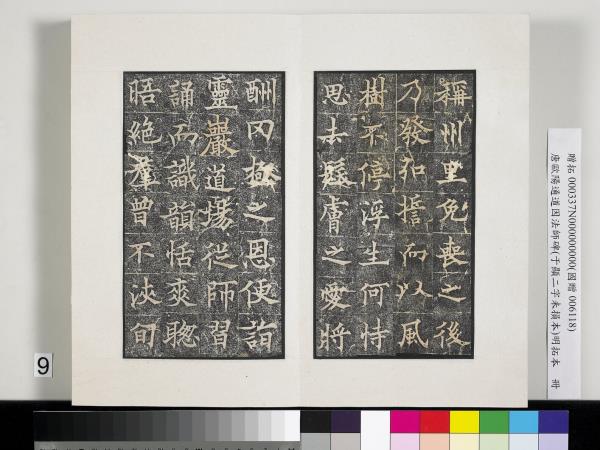 稱州里免喪之後
乃發弘而以風
樹不停浮生何恃
思去髮膚之愛將
酬罔極之恩便詣
靈巖道場從師習
誦而識韻恬爽聰
晤絕羣曾不浹旬
贈拓 000337N000000000(國贈 006118)
唐歐陽通道因法師碑(于顯二字未損本)明拓本 冊
9